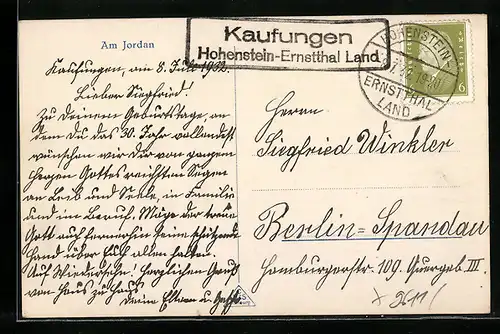 Am Jordan
Kaufungen
Hohenstein-Ernstthal Land
HOHENSTEIN-
ERNSTTHAL
LAND
6
Kaufungen, am 8. Juli 1932.
Lieber Siegfried!
Zu deinem Geburtstage, an
dem du das 30. Jahr vollendest
wünschen wir dir von ganzem
Herzen Gottes reichsten Segen
an Leib und Seele, in Familie
und im Beruf. Möge der treue
Gott auch fernerhin seine schützende
Hand über Euch allen halten.
Auf Wiedersehn! Herzlichen Gruß
von Haus zu Haus
deine Eltern u. Geschw.
Herrn
Siegfried Winkler
Berlin-Spandau
Homburgerstr. 109. Quergeb. III.